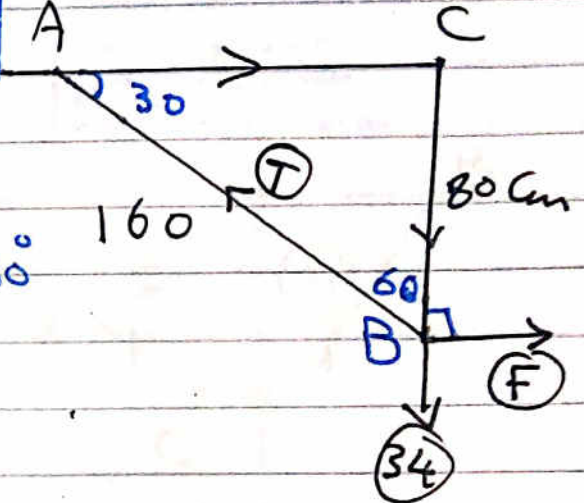 A
C
30
T
80 Cm
160
60
B
F
34